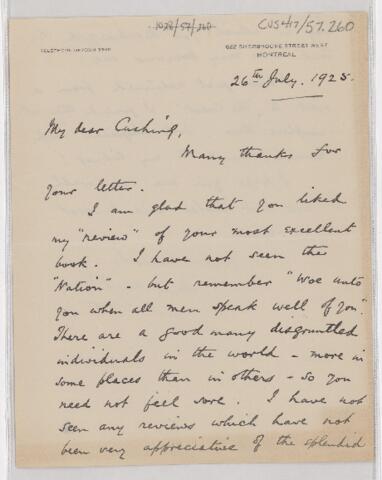 1028/57/260
CUS417/57.260
TELEPHONE UPTOWN
SHERBROOKE STREET WEST
MONTREAL
26th July. 1925.
My dear Cushing,
Many thanks for
your letter.
I am glad that you liked
my "review" of your most excellent
book. I have not seen the
"Nation" - but remember "Woe unto
you when all men speak well of you".
There are a good many disgruntled
individuals in the world - more in
some places than in others - so you
need not feel sore. I have not
seen any reviews which have not
been very appreciative of the splendid